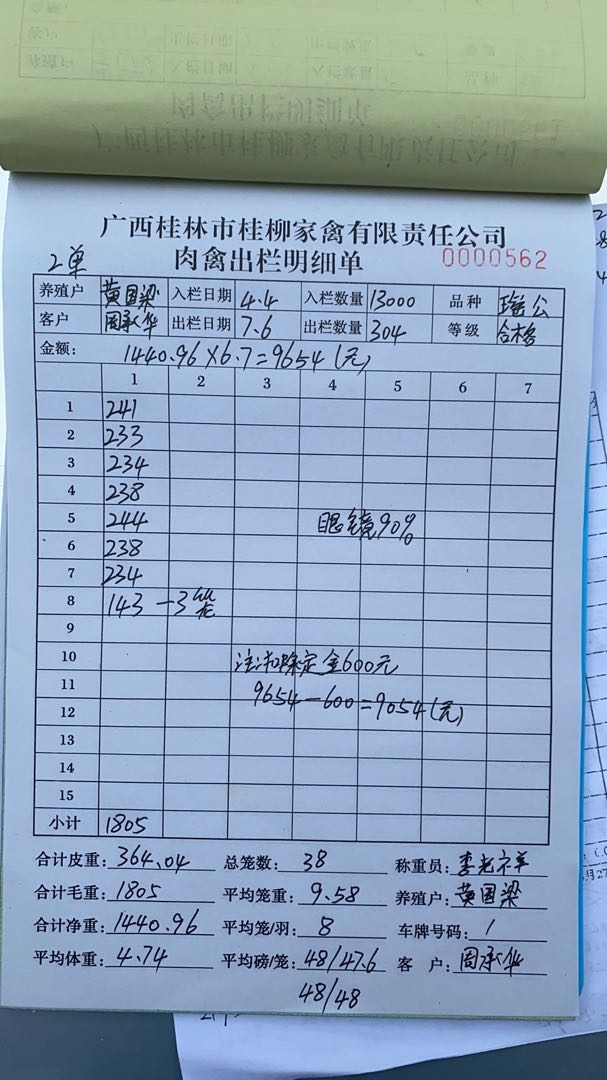 广西桂林市桂柳家禽有限责任公司
2单 肉禽出栏明细单 0000562
养殖户 黄国梁 入栏日期 4.4 入栏数量 13000 品种 瑶公
客户 周承华 出栏日期 7.6 出栏数量 304 等级 合格
金额: 1440.96×6.7=9654(元)
1 2 3 4 5 6 7
1 241
2 233
3 234
4 238
5 244 眼镜90%
6 238
7 234
8 143 —3笼
9
10 注:扣除定金600元
11 9654—600=9054(元)
12
13
14
15
小计 1805
合计皮重: 364.04 总笼数: 38 称重员:
合计毛重: 1805 平均笼重: 9.58 养殖户: 黄国梁
合计净重: 1440.96 平均笼/羽: 8 车牌号码: 1
平均体重: 4.74 平均磅/笼: 48/47.6 客 户: 周承华
48/48